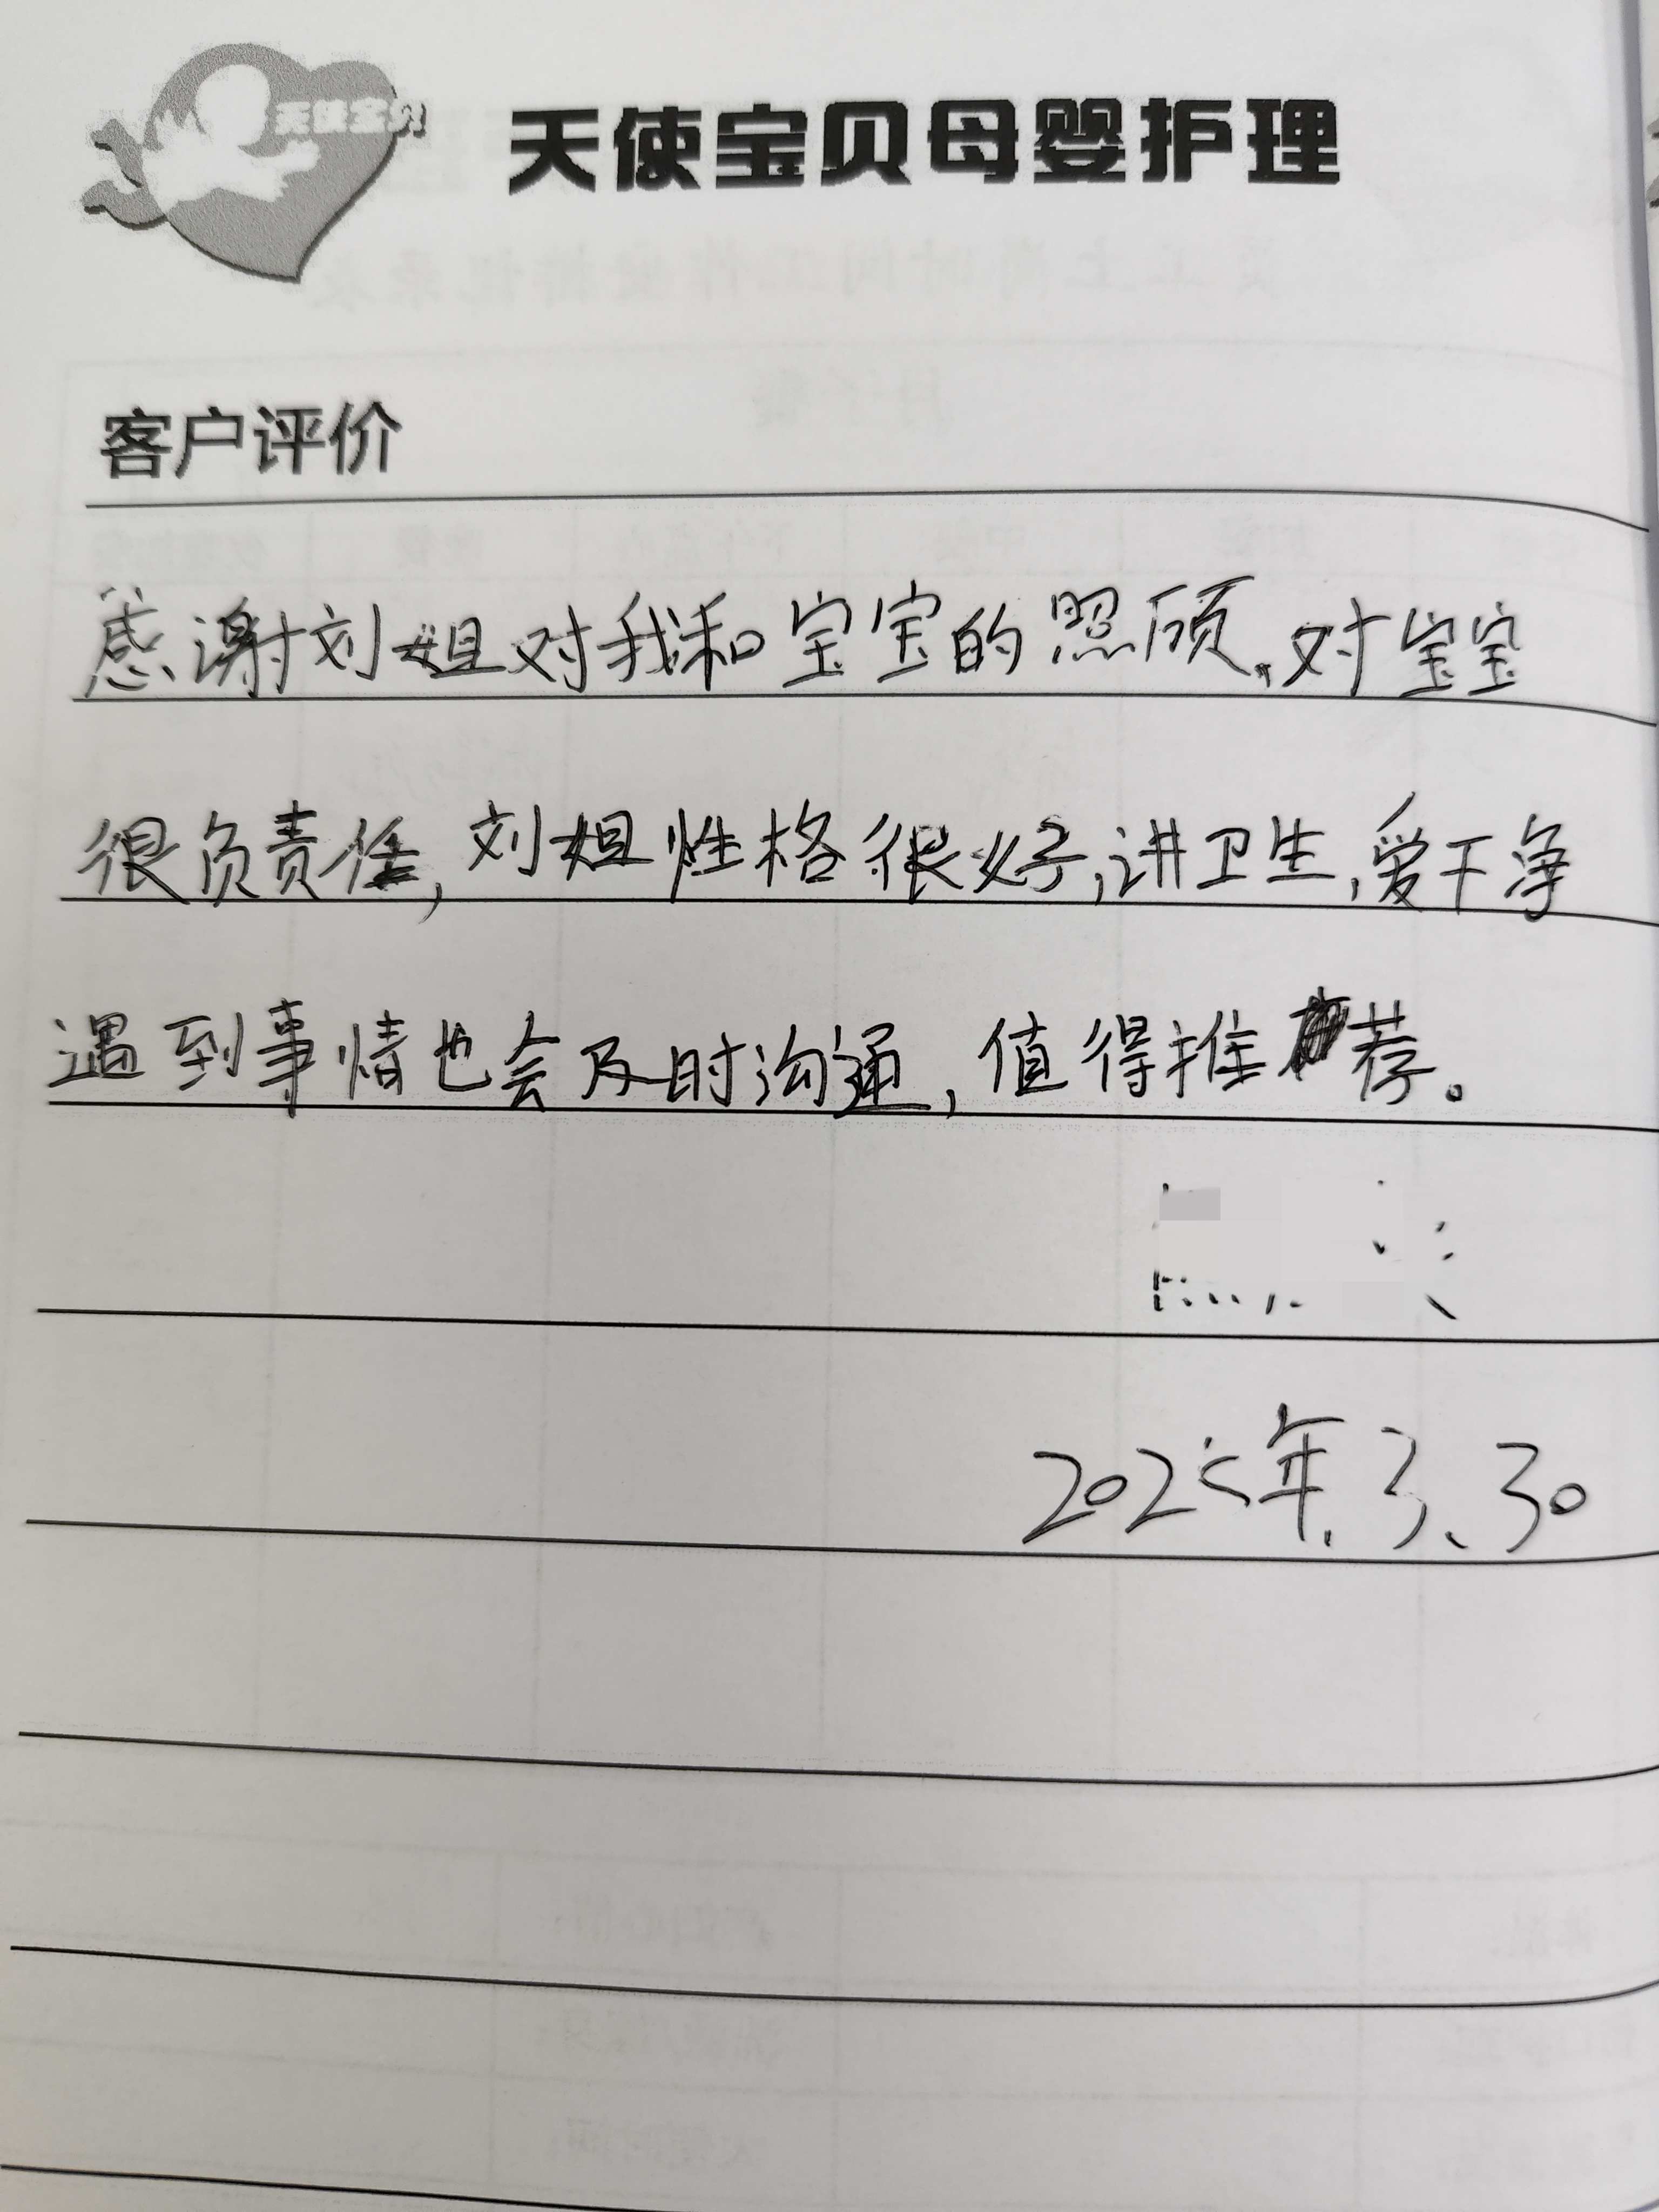 天使宝贝
天使宝贝母婴护理
客户评价
感谢刘姐对我和宝宝的照顾、对宝宝
很负责任,刘姐性格很好,讲卫生,爱干净
遇到事情也会及时沟通,值得推荐。
2025年.3、30